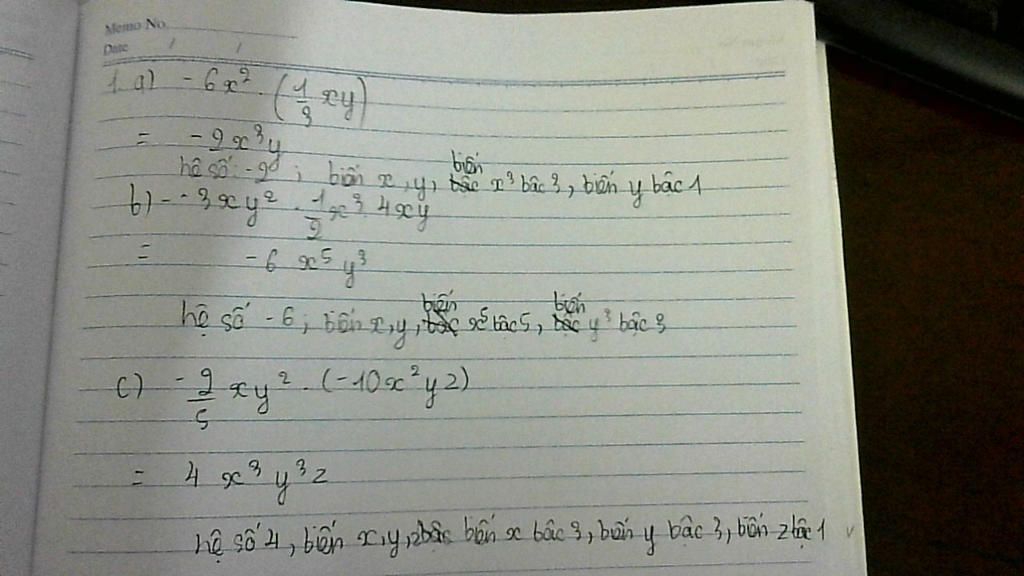 Memo No.
Date / /
1. a) - 6x² . (1/3 xy)
= - 2x³y
hệ số: -2 ; biến x, y, biến x³ bậc 3, biến y bậc 1
b) - 3xy² . 1/2 x³ . 4xy
= - 6 x⁵ y³
hệ số -6 ; biến x, y, biến x⁵ bậc 5, biến y³ bậc 3
c) - 2/5 xy² . (-10x²yz)
= 4 x³ y³ z
hệ số 4, biến x, y, z biến x bậc 3, biến y bậc 3, biến z bậc 1